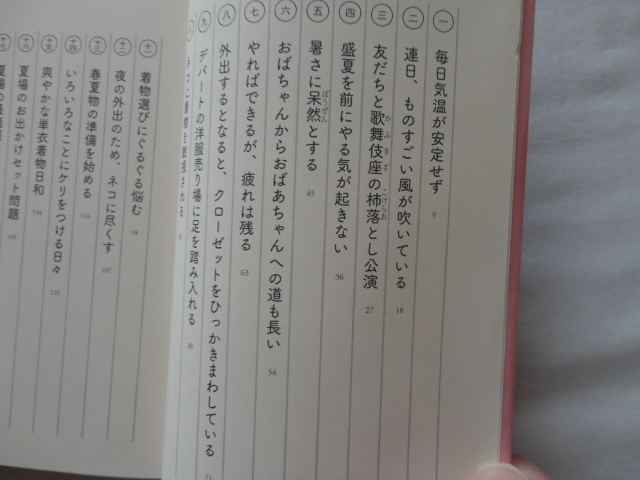 一 毎日気温が安定せず 9
二 連日、ものすごい風が吹いている 18
三 友だちと歌舞伎座の杮落とし公演 27
四 盛夏を前にやる気が起きない 36
五 暑さに呆然とする 45
六 おばちゃんからおばあちゃんへの道も長い 54
七 やればできるが、疲れは残る 63
八 外出するとなると、クローゼットをひっかきまわしている 71
九 デパートの洋服売り場に足を踏み入れる 80
十 ネコに着物を
十一 着物選びにぐるぐる悩む 98
十二 夜の外出のため、ネコに尽くす 107
十三 春夏物の準備を始める 116
十四 いろいろなことにケリをつける日々 125
十五 爽やかな単衣着物日和 134
十六 夏場のお出かけセット問題 143
十七 夏場の